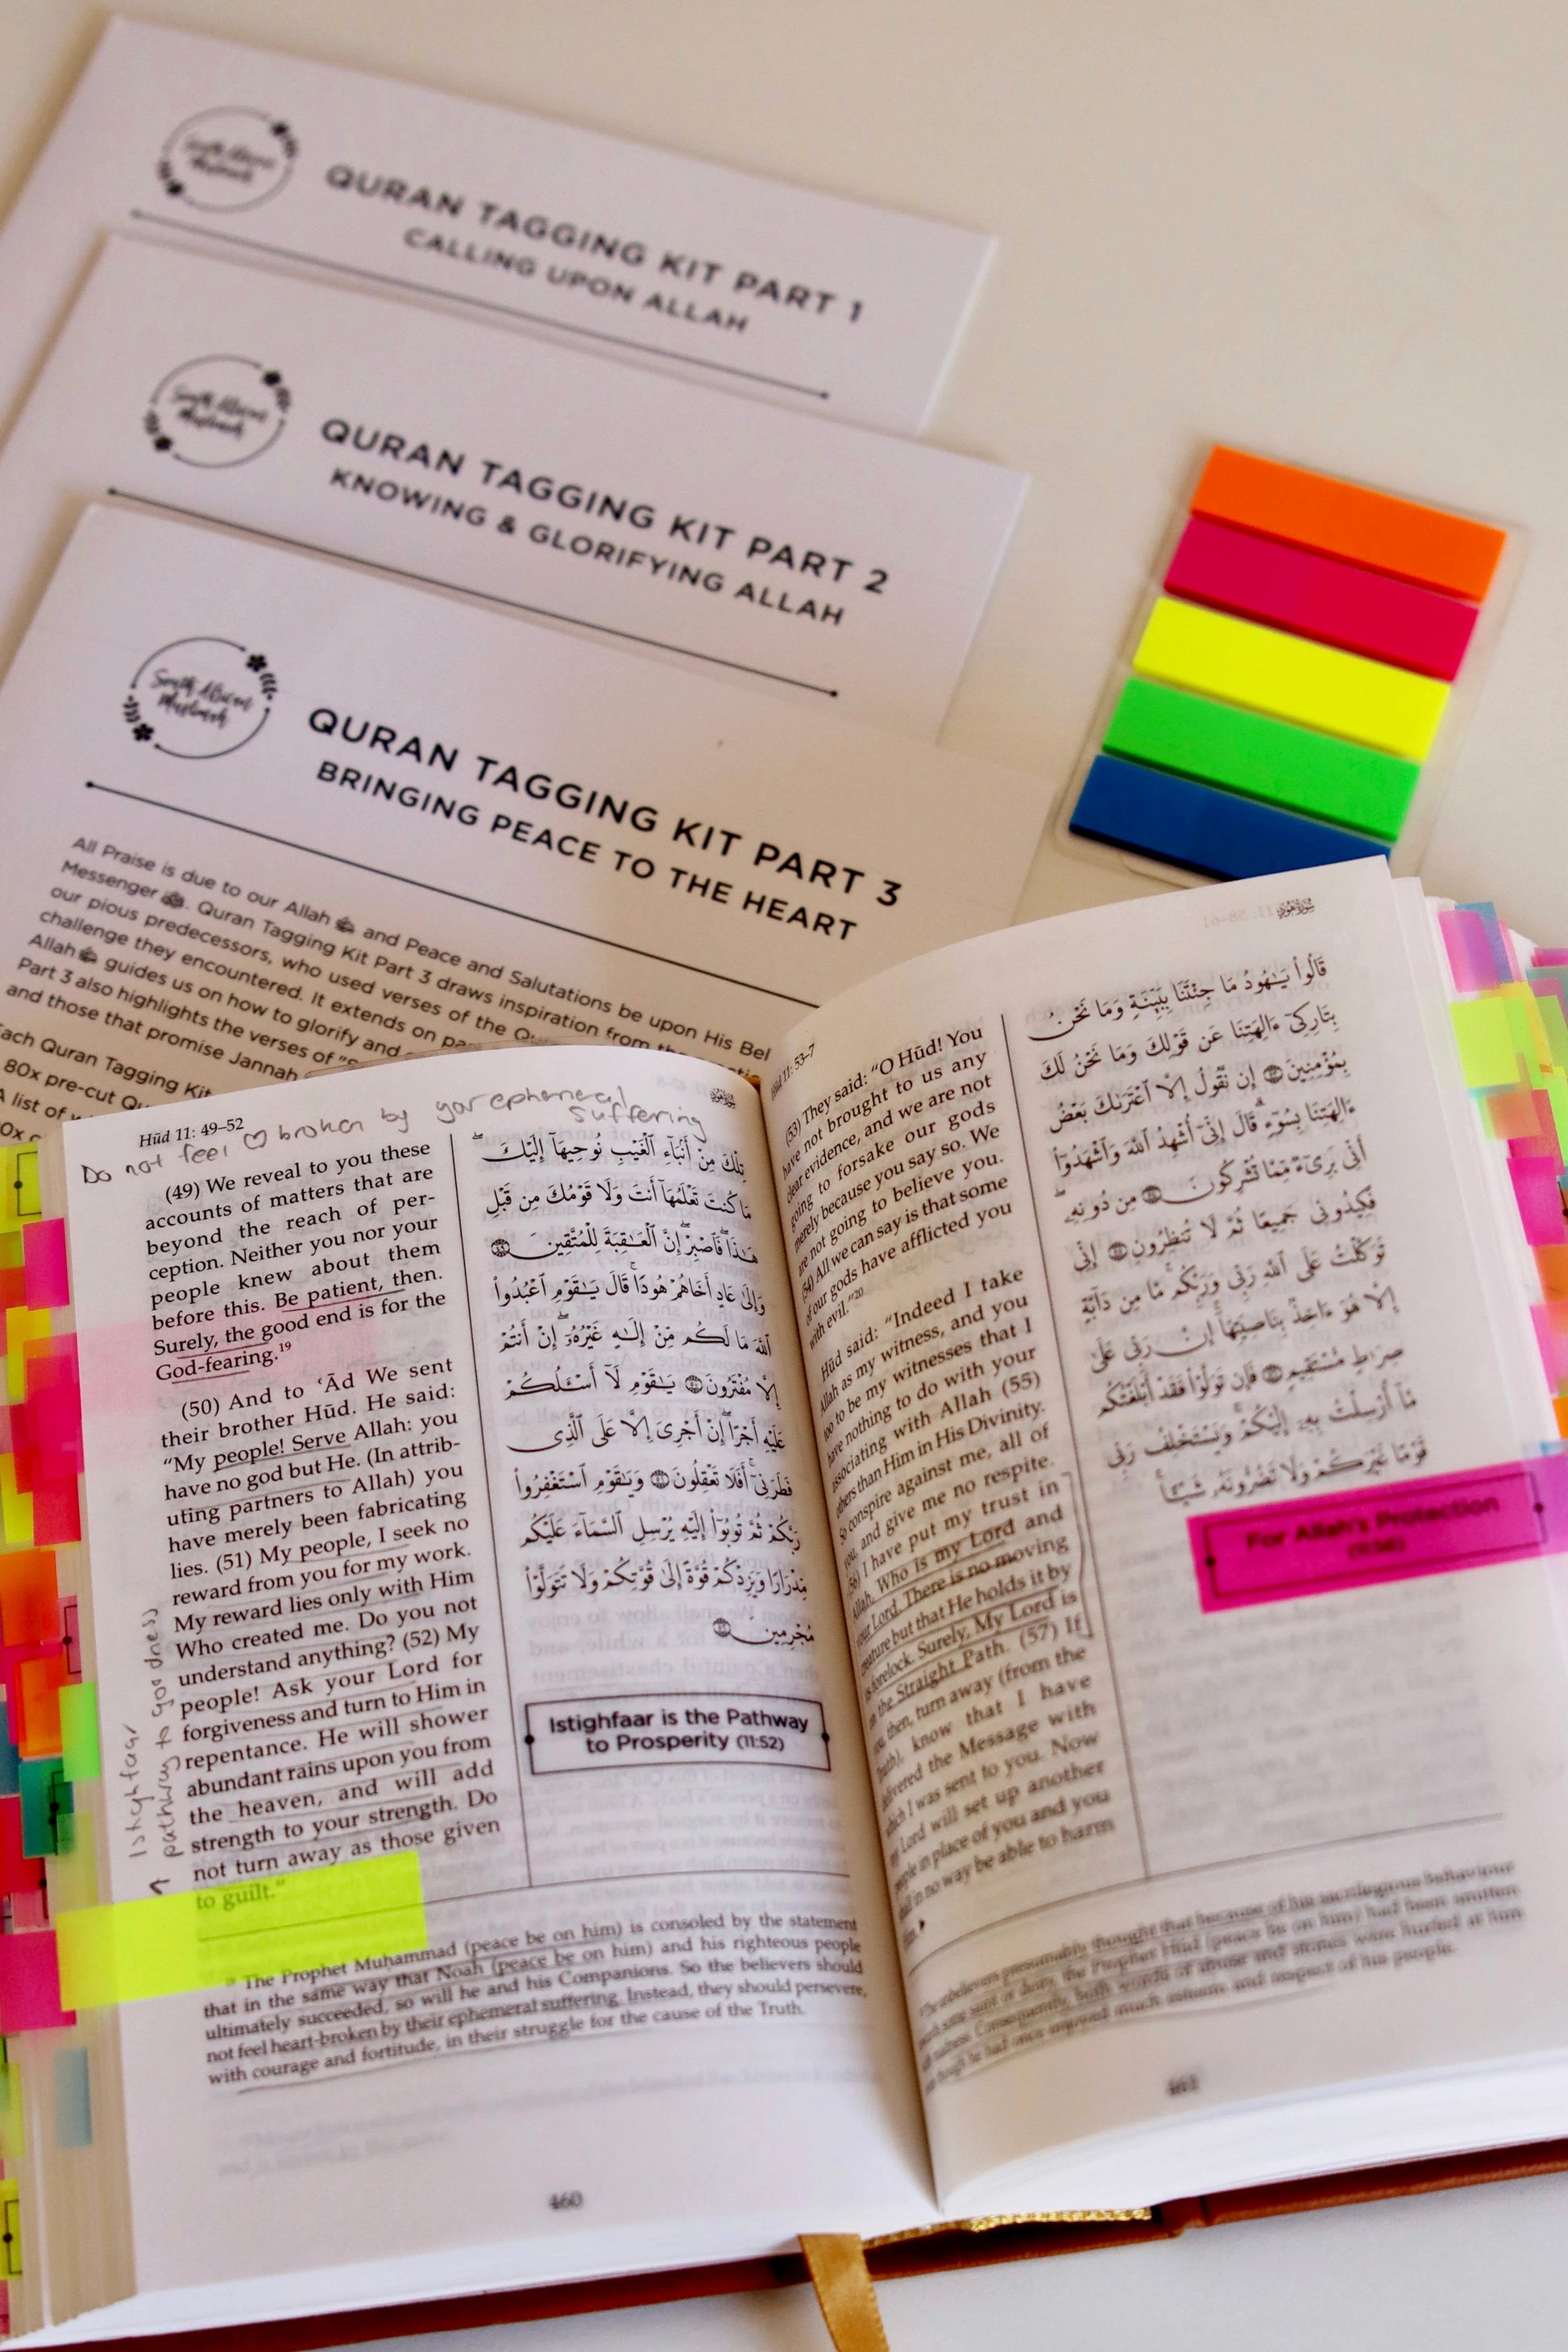 South African
Muslimah
QURAN TAGGING KIT PART 1
CALLING UPON ALLAH
South African
Muslimah
QURAN TAGGING KIT PART 2
KNOWING & GLORIFYING ALLAH
South African
Muslimah
QURAN TAGGING KIT PART 3
BRINGING PEACE TO THE HEART
All Praise is due to our Allah and Peace and Salutations be upon His Bel
Messenger. Quran Tagging Kit Part 3 draws inspiration from the
our pious predecessors, who used verses of the Qu
challenge they encountered. It extends on pa
Allah guides us on how to glorify and
Part 3 also highlights the verses of "S
and those that promise Jannah
Each Quran Tagging Kit
80x pre-cut Qu
A list of
Hūd 11: 49–52
Do not feel ♡ broken by your ephemeral
suffering
(49) We reveal to you these
accounts of matters that are
beyond the reach of per-
ception. Neither you nor your
people knew about them
before this. Be patient, then.
Surely, the good end is for the
God-fearing.¹⁹
(50) And to ‘Ād We sent
their brother Hūd. He said:
“My people! Serve Allah: you
have no god but He. (In attrib-
uting partners to Allah) you
have merely been fabricating
lies. (51) My people, I seek no
reward from you for my work.
My reward lies only with Him
Who created me. Do you not
understand anything? (52) My
people! Ask your Lord for
forgiveness and turn to Him in
repentance. He will shower
abundant rains upon you from
the heaven, and will add
strength to your strength. Do
not turn away as those given
to guilt.”
Istighfaar
pathway to goodness
تِلْكَ مِنْ أَنۢبَآءِ ٱلْغَيْبِ نُوحِيهَآ إِلَيْكَ
مَا كُنتَ تَعْلَمُهَآ أَنتَ وَلَا قَوْمُكَ مِن قَبْلِ
هَـٰذَا فَٱصْبِرْ إِنَّ ٱلْعَـٰقِبَةَ لِلْمُتَّقِينَ ۝٤٩
وَإِلَىٰ عَادٍ أَخَاهُمْ هُودًا قَالَ يَـٰقَوْمِ ٱعْبُدُوا۟
ٱللَّهَ مَا لَكُم مِّنْ إِلَـٰهٍ غَيْرُهُۥٓ إِنْ أَنتُمْ
إِلَّا مُفْتَرُونَ ۝٥٠ يَـٰقَوْمِ لَآ أَسْـَٔلُكُمْ
عَلَيْهِ أَجْرًا إِنْ أَجْرِىَ إِلَّا عَلَى ٱلَّذِى
فَطَرَنِىٓ أَفَلَا تَعْقِلُونَ ۝٥١ وَيَـٰقَوْمِ ٱسْتَغْفِرُوا۟
رَبَّكُمْ ثُمَّ تُوبُوٓا۟ إِلَيْهِ يُرْسِلِ ٱلسَّمَآءَ عَلَيْكُم
مِّدْرَارًا وَيَزِدْكُمْ قُوَّةً إِلَىٰ قُوَّتِكُمْ وَلَا تَتَوَلَّوْا۟
مُجْرِمِينَ ۝٥٢
Istighfaar is the Pathway
to Prosperity (11:52)
The Prophet Muḥammad (peace be on him) is consoled by the statement
that in the same way that Noah (peace be on him) and his righteous people
ultimately succeeded, so will he and his Companions. So the believers should
not feel heart-broken by their ephemeral suffering. Instead, they should persevere,
with courage and fortitude, in their struggle for the cause of the Truth.
460
Hūd 11: 53–7
(53) They said: “O Hūd! You
have not brought to us any
clear evidence, and we are not
going to forsake our gods
merely because you say so. We
are not going to believe you.
(54) All we can say is that some
of our gods have afflicted you
with evil.”²⁰
Hūd said: “Indeed I take
Allah as my witness, and you
too to be my witnesses that I
have nothing to do with your
associating with Allah (55)
others than Him in His Divinity.
So conspire against me, all of
you, and give me no respite.
(56) I have put my trust in
Allah, Who is my Lord and
your Lord. There is no moving
creature but that He holds it by
its forelock. Surely, My Lord is
on the Straight Path. (57) If
you, then, turn away (from the
Truth), know that I have
delivered the Message with
which I was sent to you. Now
my Lord will set up another
people in place of you and you
shall in no way be able to harm
Him.
قَالُوا۟ يَـٰهُودُ مَا جِئْتَنَا بِبَيِّنَةٍ وَمَا نَحْنُ
بِتَارِكِىٓ ءَالِهَتِنَا عَن قَوْلِكَ وَمَا نَحْنُ لَكَ
بِمُؤْمِنِينَ ۝٥٣ إِن نَّقُولُ إِلَّا ٱعْتَرَىٰكَ بَعْضُ
ءَالِهَتِنَا بِسُوٓءٍ قَالَ إِنِّىٓ أُشْهِدُ ٱللَّهَ وَٱشْهَدُوٓا۟
أَنِّى بَرِىٓءٌ مِّمَّا تُشْرِكُونَ ۝٥٤ مِن دُونِهِۦ
فَكِيدُونِى جَمِيعًا ثُمَّ لَا تُنظِرُونِ ۝٥٥ إِنِّى
تَوَكَّلْتُ عَلَى ٱللَّهِ رَبِّى وَرَبِّكُم مَّا مِن دَآبَّةٍ
إِلَّا هُوَ ءَاخِذٌۢ بِنَاصِيَتِهَآ إِنَّ رَبِّى عَلَىٰ
صِرَٰطٍ مُّسْتَقِيمٍ ۝٥٦ فَإِن تَوَلَّوْا۟ فَقَدْ أَبْلَغْتُكُم
مَّآ أُرْسِلْتُ بِهِۦٓ إِلَيْكُمْ وَيَسْتَخْلِفُ رَبِّى
قَوْمًا غَيْرَكُمْ وَلَا تَضُرُّونَهُۥ شَيْـًٔا
For Allah's Protection
(11:56)
461